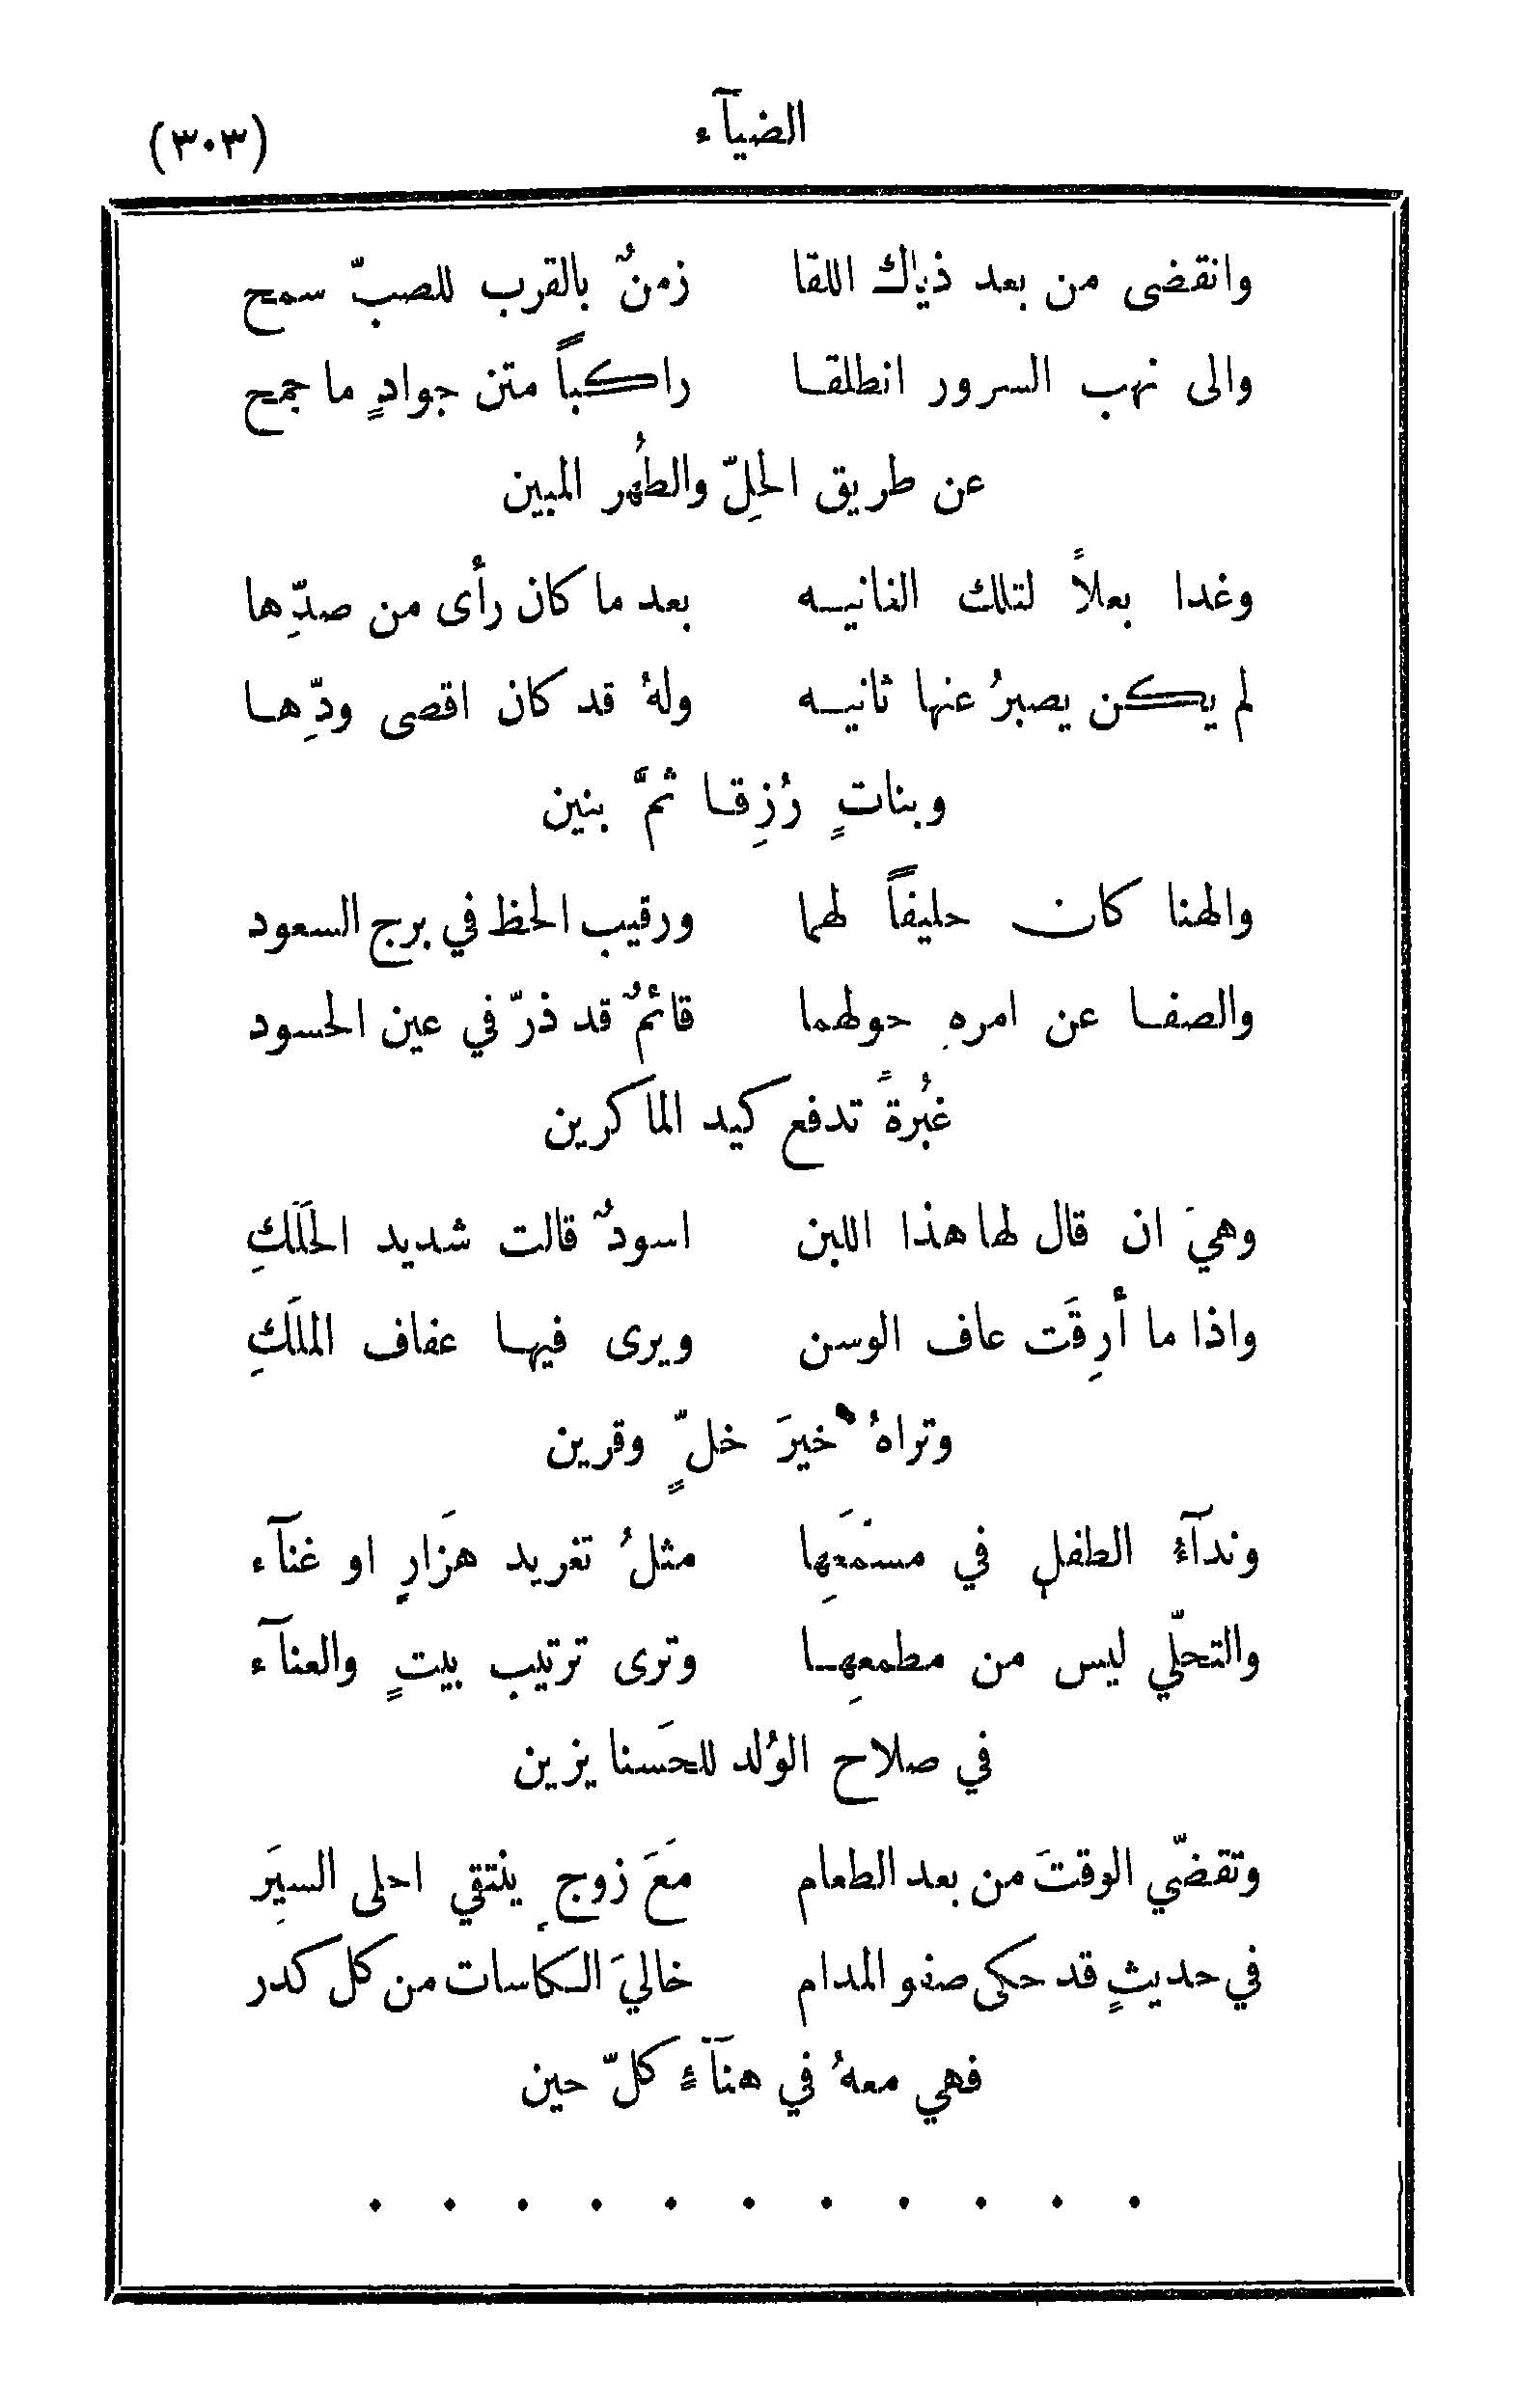 الضيآء (٣٠٣)
وانقضى من بعد ذياك اللقا زمنٌ بالقرب للصبّ سمح
والى نهب السرور انطلقا راكباً متن جوادٍ ما جمح
عن طريق الحِلّ والطُهر المبين
وغدا بعلاً لتلك الغانيه بعد ما كان رأى من صدِّها
لم يكن يصبرُ عنها ثانيه ولهُ قد كان اقصى ودِّها
وبناتٍ رُزِقا ثمَّ بنين
والهنا كان حليفاً لهما ورقيب الحظ في برج السعود
والصفا عن امرهِ حولهما قائمٌ قد ذرّ في عين الحسود
غُبرةً تدفع كيد الماكرين
وهيَ ان قال لها هذا اللبن اسودٌ قالت شديد الحَلَكِ
واذا ما أرِقَت عاف الوسن ويرى فيها عفاف الملَكِ
وتراهُ خيرَ خلٍّ وقرين
وندآءُ الطفلِ في مسمَعِها مثلُ تغريد هَزارٍ او غنآء
والتحلّي ليس من مطمعِها وترى ترتيب بيتٍ والعنآء
في صلاح الوُلد للحَسنا يزين
وتقضّي الوقتَ من بعد الطعام مَعَ زوجٍ ينتقي احلى السيَرِ
في حديثٍ قد حكى صفو المدام خاليَ الكاسات من كل كدر
فهي معهُ في هنآءٍ كلّ حين
. . . . . . . . . . .